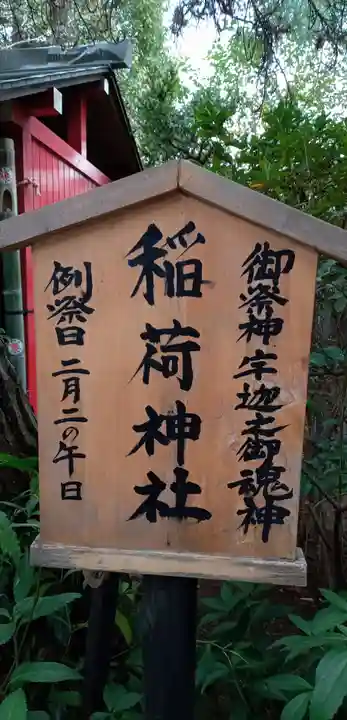 御祭神 宇迦之御魂神
稲荷神社
例祭日 二月二の午日